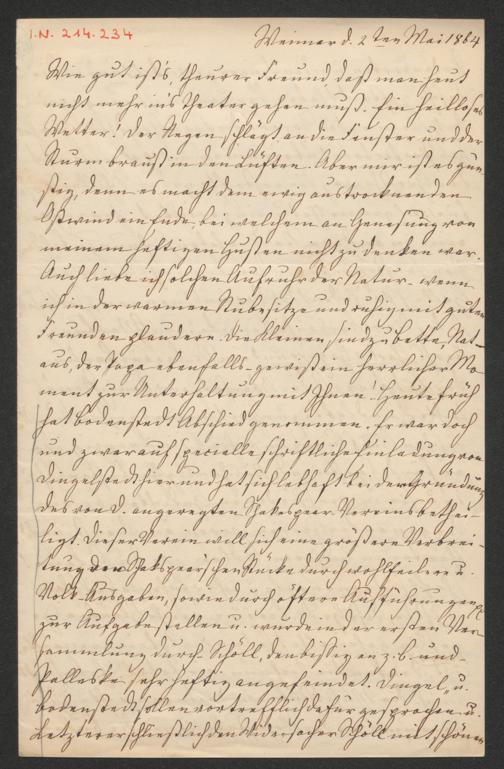 I.N. 214.234
Weimar d. 2ten Mai 1864
Wie gut ist's, theurer Freund, daß man heut
nicht mehr in's Theater gehen muß. Ein heilloses
Wetter! Der Regen schlägt an die Fenster und der
Sturm braust in den Lüften. Aber mir ist es gün-
stig, denn es macht dem ewig austrocknenden
Ostwind ein Ende, bei welchem an Genesung von
meinem heftigen Husten nicht zu denken war.
Auch liebe ich solchen Aufruhr der Natur - wenn
ich in der warmen Stube sitze und ruhig mit guten
Freunden plaudere. Die Kleinen sind zu Bette, Nat-
aus, der Papa ebenfalls - gewiß ein herrlicher Mo-
ment zur Unterhaltung mit Ihnen! Heute früh
hat Bodenstedt Abschied genommen. Er war doch
und zwar auf specielle schriftliche Einladung von
Dingelstedt hier und hat sich lebhaft bei der Gründung
des von D. angeregten Shakespear Vereins bethei-
ligt. Dieser Verein will sich eine größere Verbrei-
tung der Shakspear'schen Stücke durch wohlfeilere u.
Volks-Ausgaben, sowie durch öftere Aufführungen
zur Aufgabe stellen u. wurde in der ersten Ver-
sammlung durch Schöll, den bissigen z. b. und
Palleske sehr heftig angefeindet. Dingel. u.
Bodenstedt sollen vortrefflich dafür gesprochen u.
Letzterer schließlich den Widersacher Schöll mit schönen